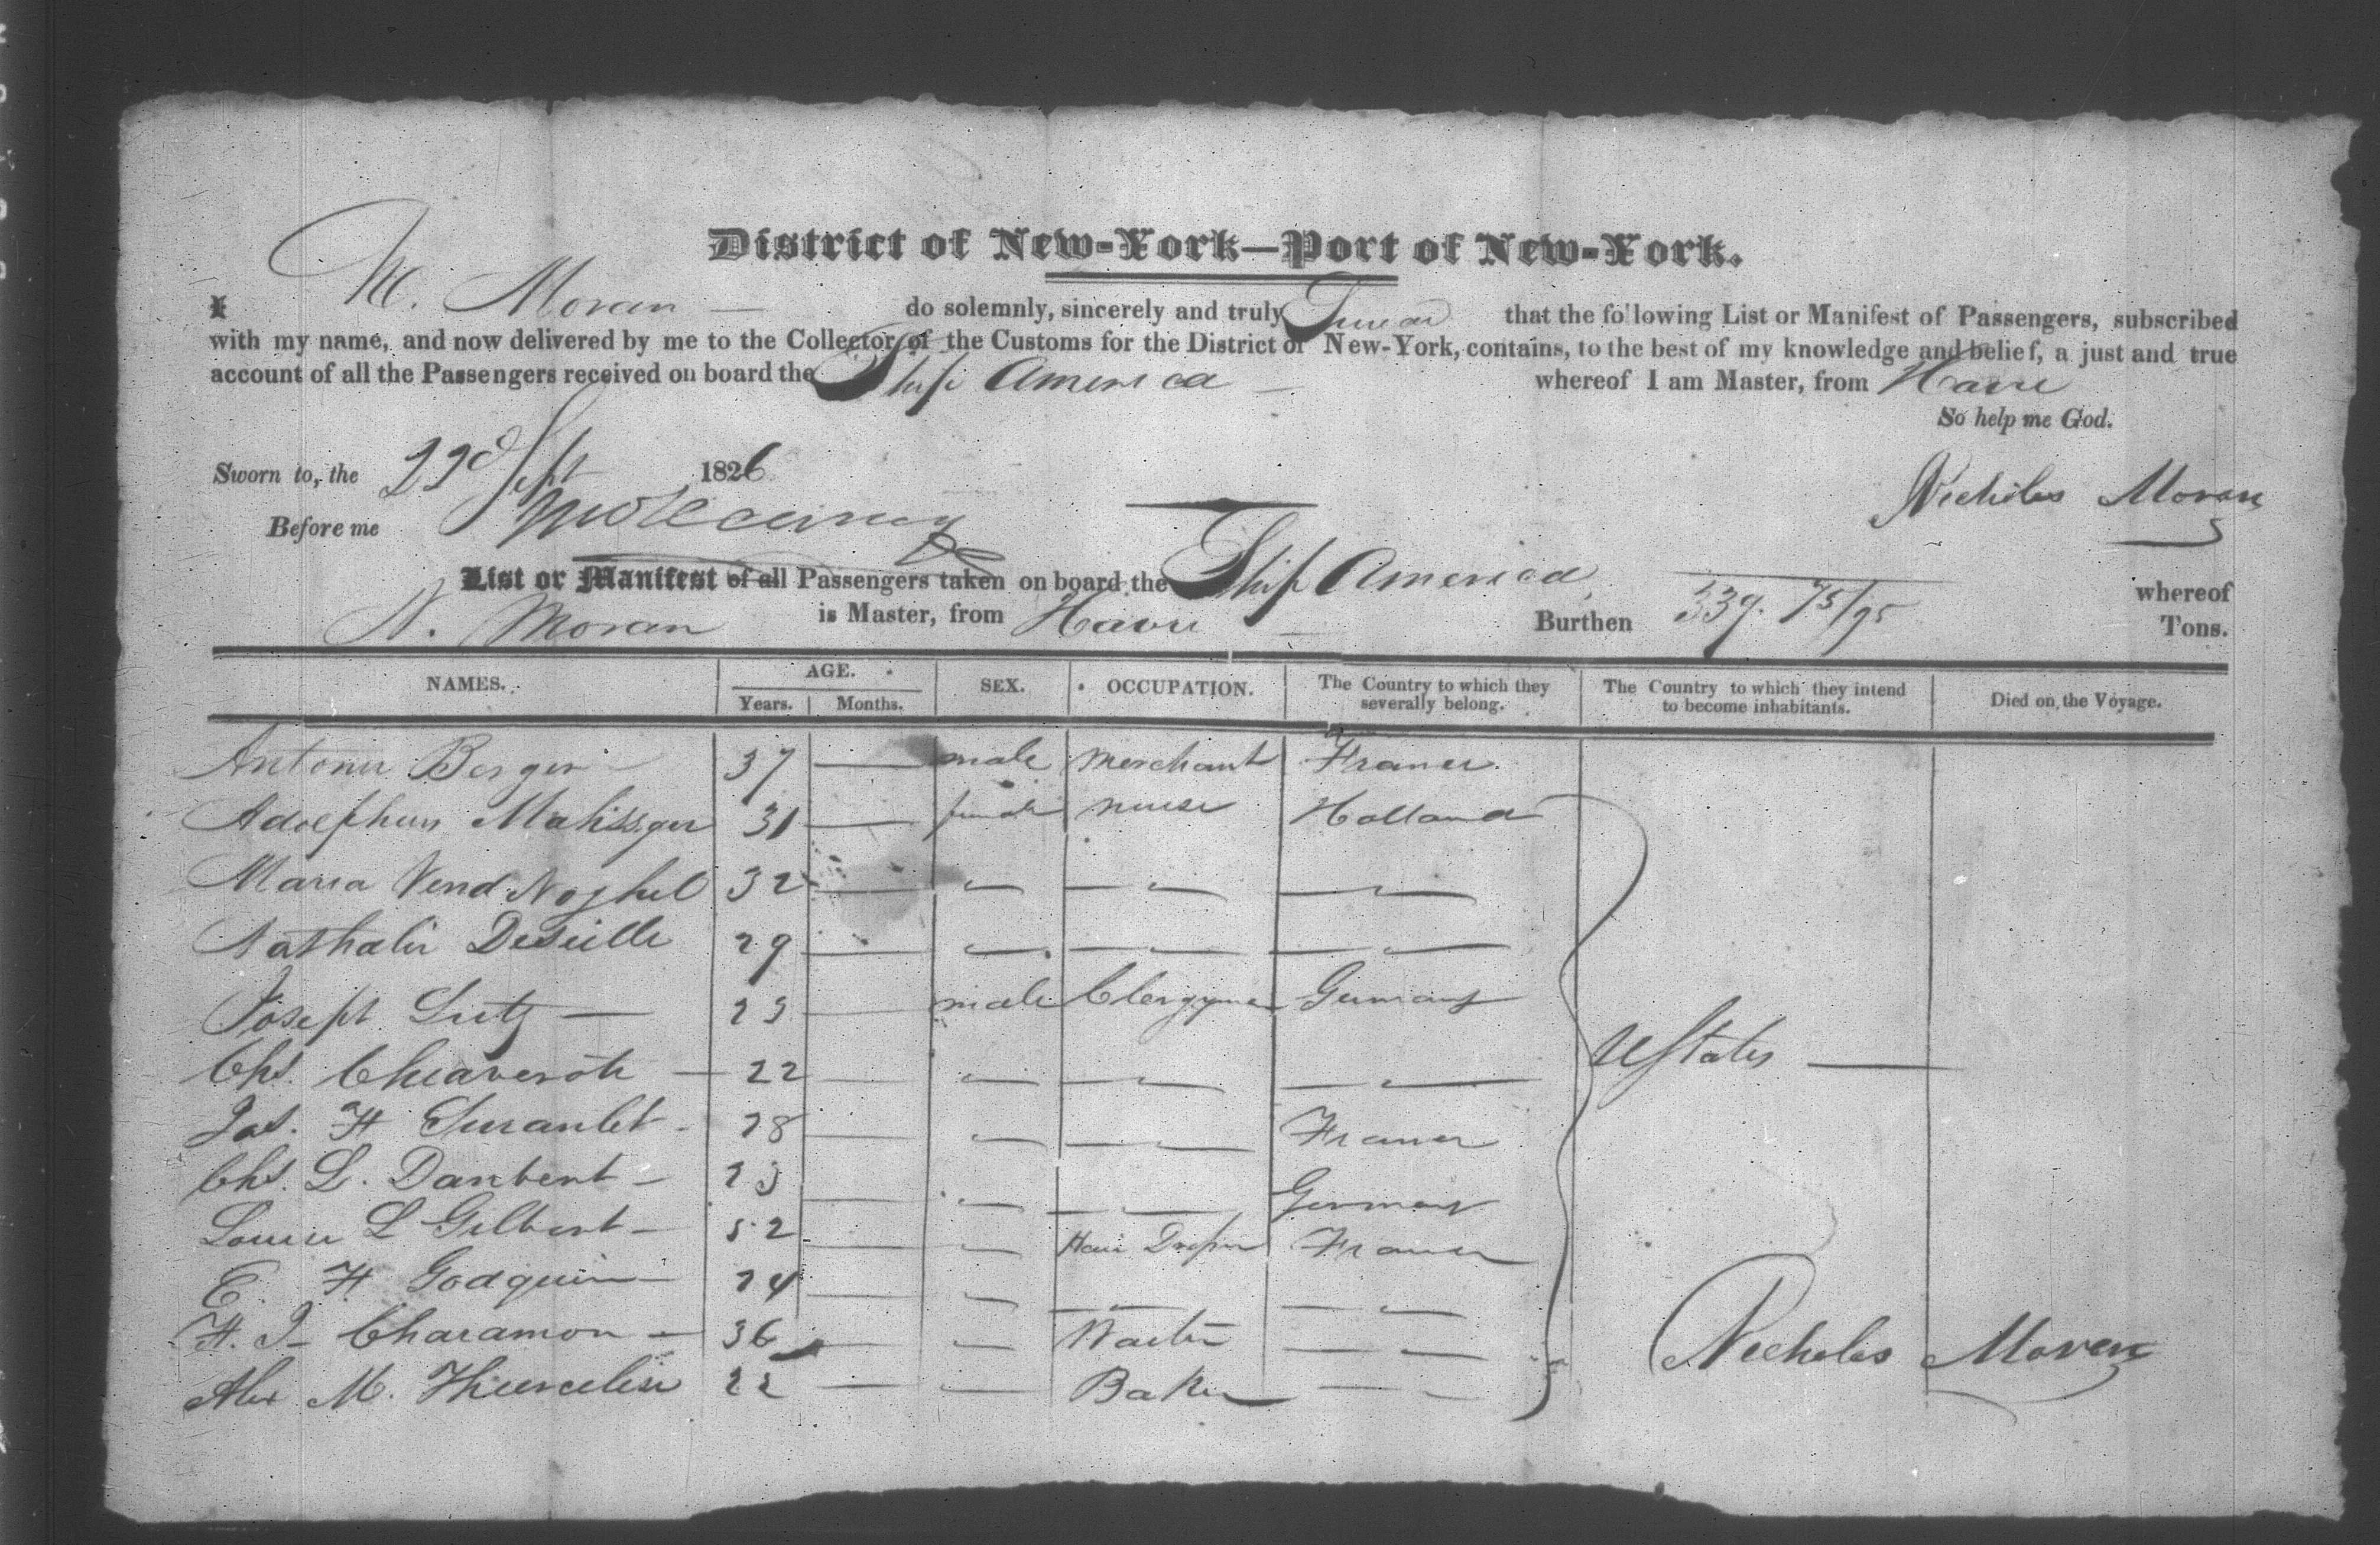 District of New-York—Port of New-York.
I N. Moran — do solemnly, sincerely and truly Swear that the following List or Manifest of Passengers, subscribed
with my name, and now delivered by me to the Collector of the Customs for the District of New-York, contains, to the best of my knowledge and belief, a just and true
account of all the Passengers received on board the Ship America — whereof I am Master, from Havre
So help me God.
Sworn to, the 22d Sept 1826
Nicholas Moran
Before me
List or Manifest of all Passengers taken on board the Ship America, whereof
N. Moran is Master, from Havre — Burthen 339. 75/95 Tons.
NAMES. AGE. SEX. OCCUPATION. The Country to which they severally belong. The Country to which they intend to become inhabitants. Died on the Voyage.
Years. Months.
Antonie Berger — 37 — male Merchant France
Adolphus 31 — female nurse Holland
Maria Vend Noghel 32 — — — — — —
Nathalie Deseille 29 — — — — — —
Joseph Lutz — 23 — male Clergyman Germany
UStates —
Chs. 22 — — — — — —
Jas. H 28 — — — — France
Chs. L. Danbert — 23 — — — — Germany
Louis L Gilbert — 52 — — Hair Dresser France
E. H Godquin — 24 — — — — — —
H. J — Charamon — 36 — — Waiter — —
Nicholas Moran
Alex M. 22 — — Baker — —